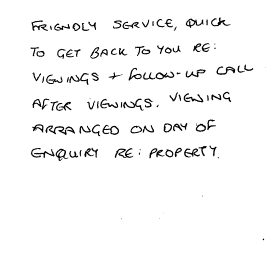 FRIENDLY SERVICE, QUICK
TO GET BACK TO YOU RE:
VIEWINGS + FOLLOW-UP CALL
AFTER VIEWINGS. VIEWING
ARRANGED ON DAY OF
ENQUIRY RE: PROPERTY.